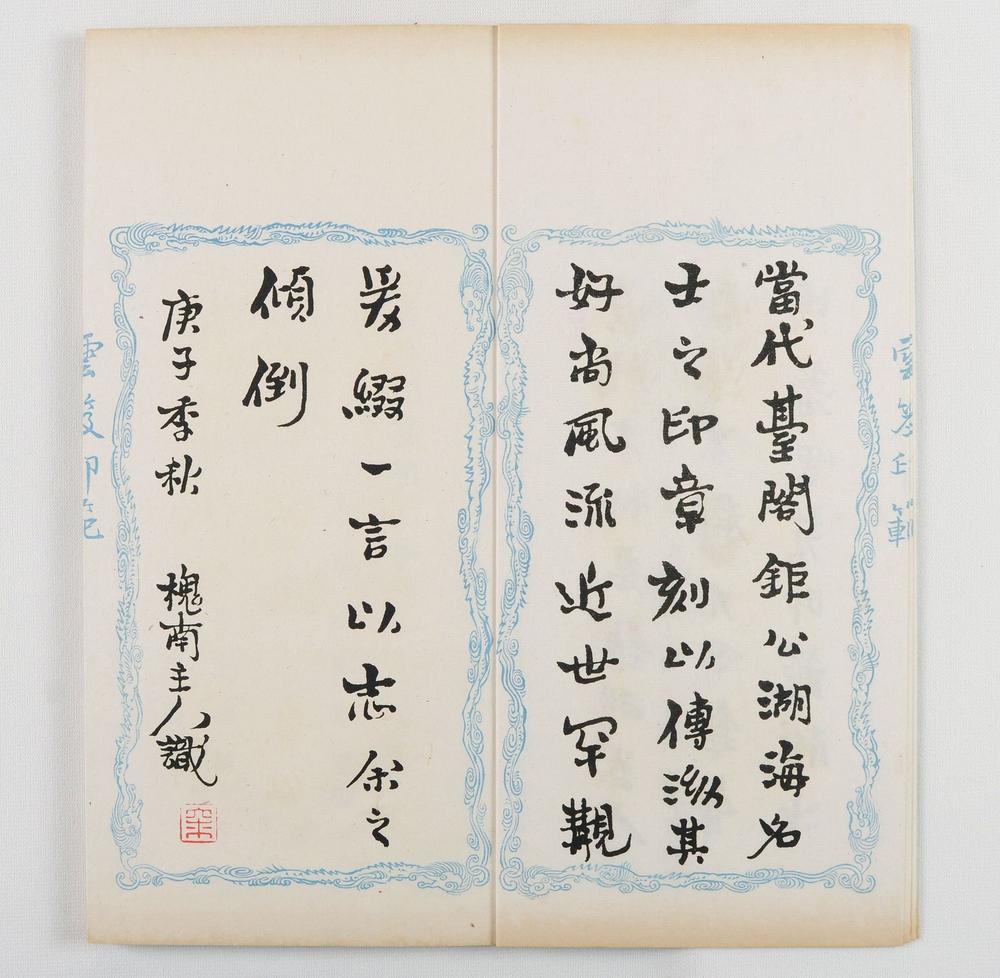 當代臺閣鉅公湖海名
士之印章刻以傳其
好尚風流近世罕覯
爰綴一言以志余之
傾倒
庚子季秋 槐南主人識